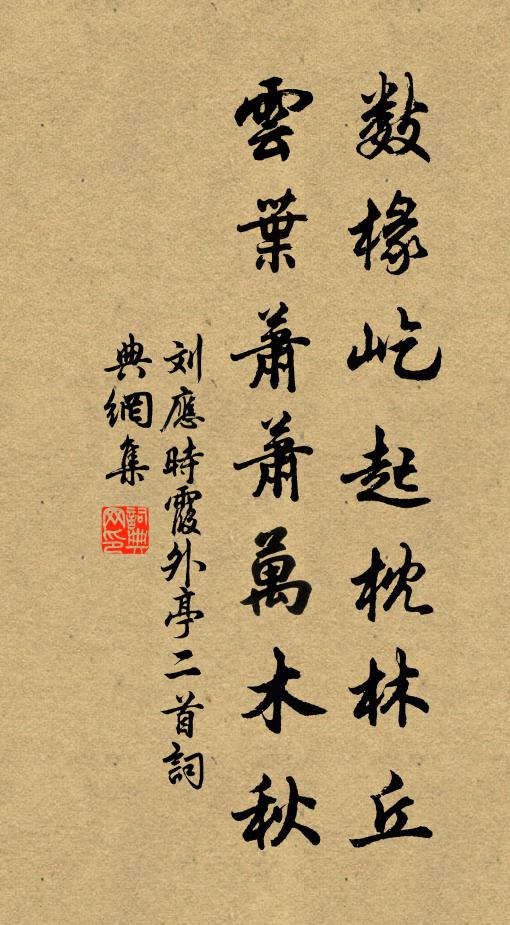 數椽屹起枕林丘
雲葉蕭蕭萬木秋
刘應時霞外亭二首詞
典網集
詞典網印